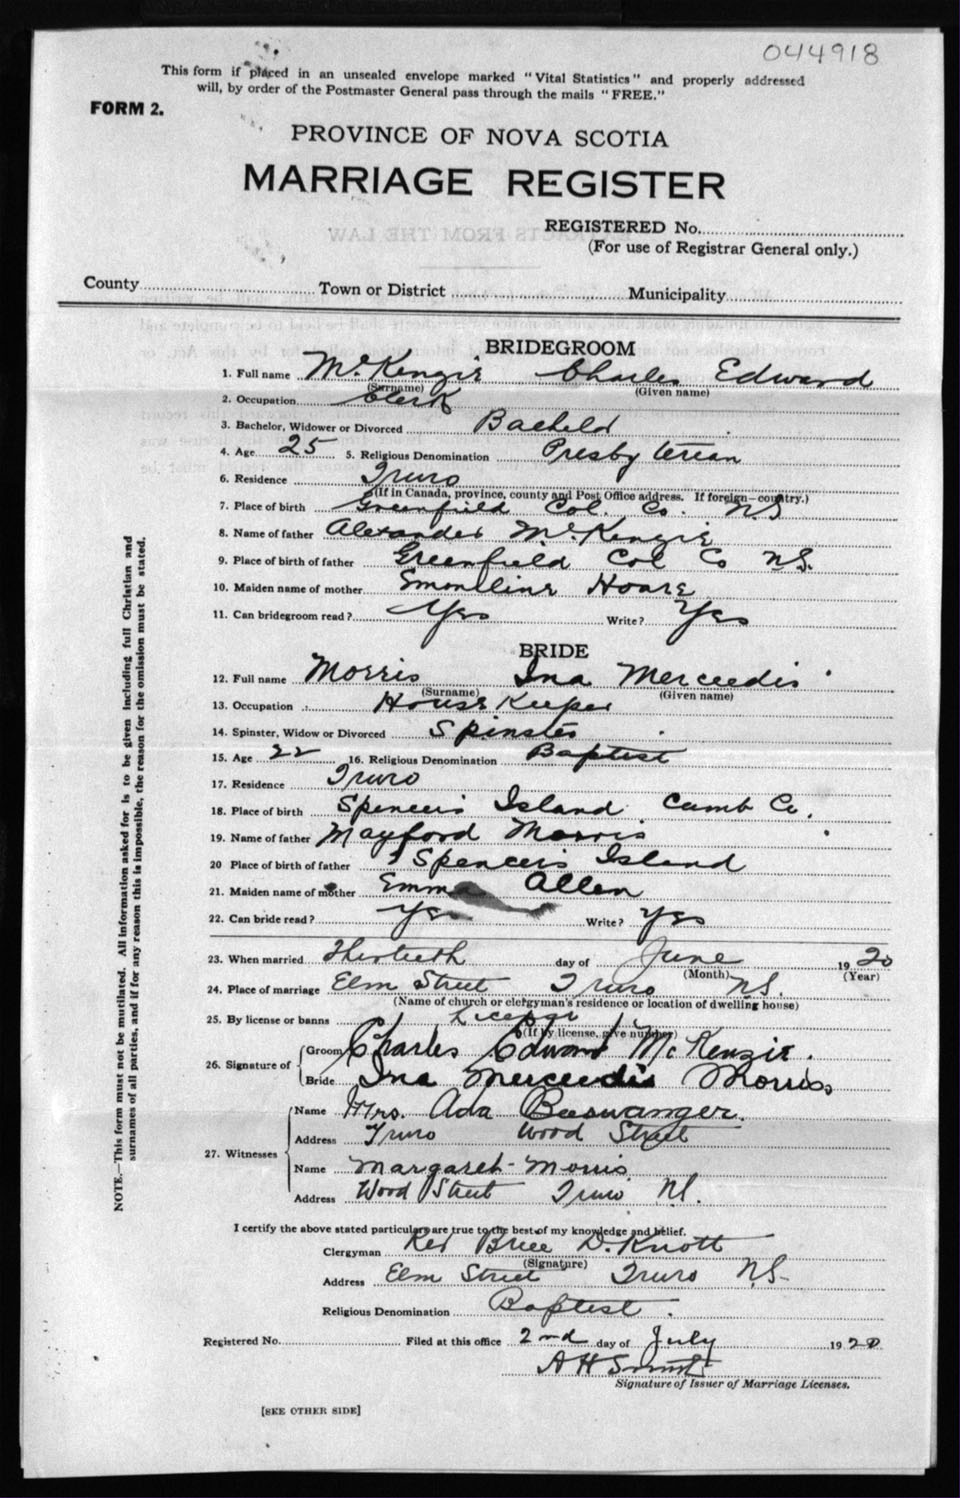 044918
This form if placed in an unsealed envelope marked "Vital Statistics" and properly addressed
will, by order of the Postmaster General pass through the mails "FREE."
FORM 2.
PROVINCE OF NOVA SCOTIA
MARRIAGE REGISTER
REGISTERED No.
(For use of Registrar General only.)
County Town or District Municipality
BRIDEGROOM
1. Full name McKenzie Charles Edward
(Surname) (Given name)
2. Occupation Clerk
3. Bachelor, Widower or Divorced Bachelor
4. Age 25 5. Religious Denomination Presbyterian
6. Residence Truro
(If in Canada, province, county and Post Office address. If foreign—country.)
7. Place of birth Greenfield Col. Co. N.S
8. Name of father Alexander McKenzie
9. Place of birth of father Greenfield Col Co N.S.
10. Maiden name of mother Hoare
11. Can bridegroom read? Yes Write? Yes
BRIDE
12. Full name Morris Ina Merceedis
(Surname) (Given name)
13. Occupation House Keeper
14. Spinster, Widow or Divorced Spinster
15. Age 22 16. Religious Denomination Baptist
17. Residence Truro
18. Place of birth Spencer's Island Cumb Co.
19. Name of father Mayford Morris
20 Place of birth of father Spencer's Island
21. Maiden name of mother Emma Allen
22. Can bride read? Yes Write? Yes
23. When married Thirtieth day of June 1920
(Month) (Year)
24. Place of marriage Elm Street Truro N.S.
(Name of church or clergyman's residence or location of dwelling house)
25. By license or banns License
(If by license, give number)
26. Signature of Groom Charles Edward McKenzie.
Bride Ina Merceedis Morriss
27. Witnesses Name Mrs. Ada Beeswanger.
Address Truro Wood Street
Name Margaret Morris
Address Wood Street Truro N.S.
I certify the above stated particulars are true to the best of my knowledge and belief.
Clergyman Rev Brice D. Knott
(Signature)
Address Elm Street Truro N.S.
Religious Denomination Baptist.
Registered No. Filed at this office 2nd day of July 1920
A H Smith
Signature of Issuer of Marriage Licenses.
[SEE OTHER SIDE]
NOTE.—This form must not be mutilated. All information asked for is to be given including full Christian and
surnames of all parties, and if for any reason this is impossible, the reason for the omission must be stated.